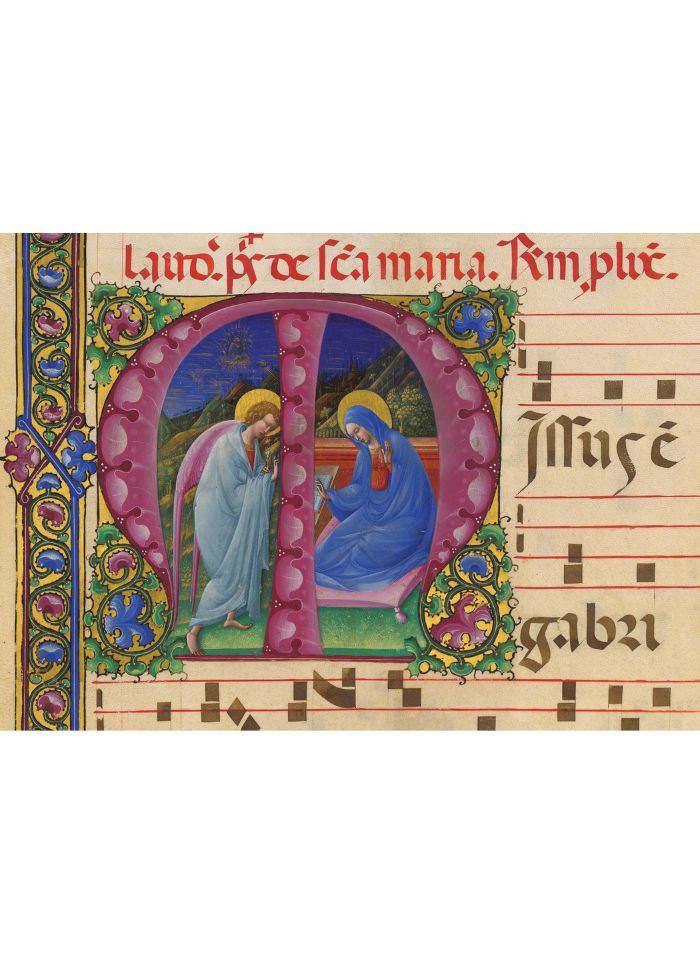 laudꝰ. pš de sc̄a maria. Sem̄ pluc̄.
M
Issus ē
gabri